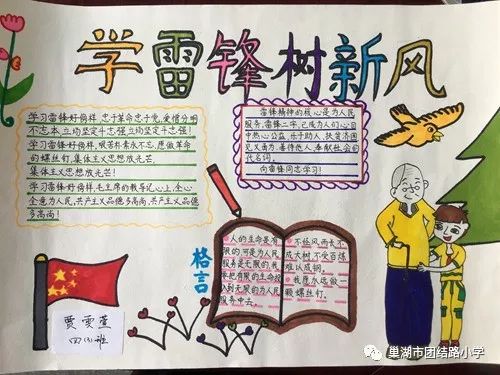 学雷锋树新风
学习雷锋好榜样，忠于革命忠于党，爱憎分明
不忘本立场坚定斗志强立场坚定斗志强！
学习雷锋好榜样，艰苦朴素永不忘，愿做革命
的螺丝钉，集体主义思想放光芒，
集体主义思想放光芒！
学习雷锋好榜样，毛主席的教导记心上，全心
全意为人民，共产主义品德多高尚，共产主义品德
多高尚！
雷锋精神的核心是为人民
服务，雷锋二字，已成为人们心目
中热心公益，乐于助人，扶贫济困
见义勇为，善待他人，奉献社会的
代名词。
向雷锋同志学习！
格言
人的生命是有
限的，可是为人民
服务是无限的，我
要把有限的生命投
入到无限的为人民
服务中去。
不经风雨长不
成大树，不受百炼
难以成钢。
我愿永远做一
颗螺丝钉。
贾雯萱
四（3）班
巢湖市团结路小学